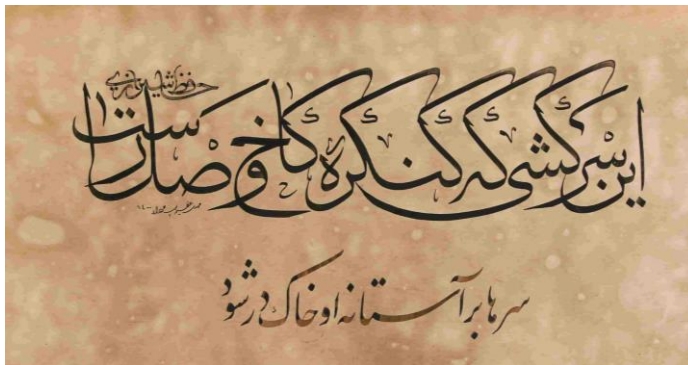 حافظ شیرازی
این سرکشی که کنگره کاخ وصل راست
سرها بر آستانه او خاک در شود